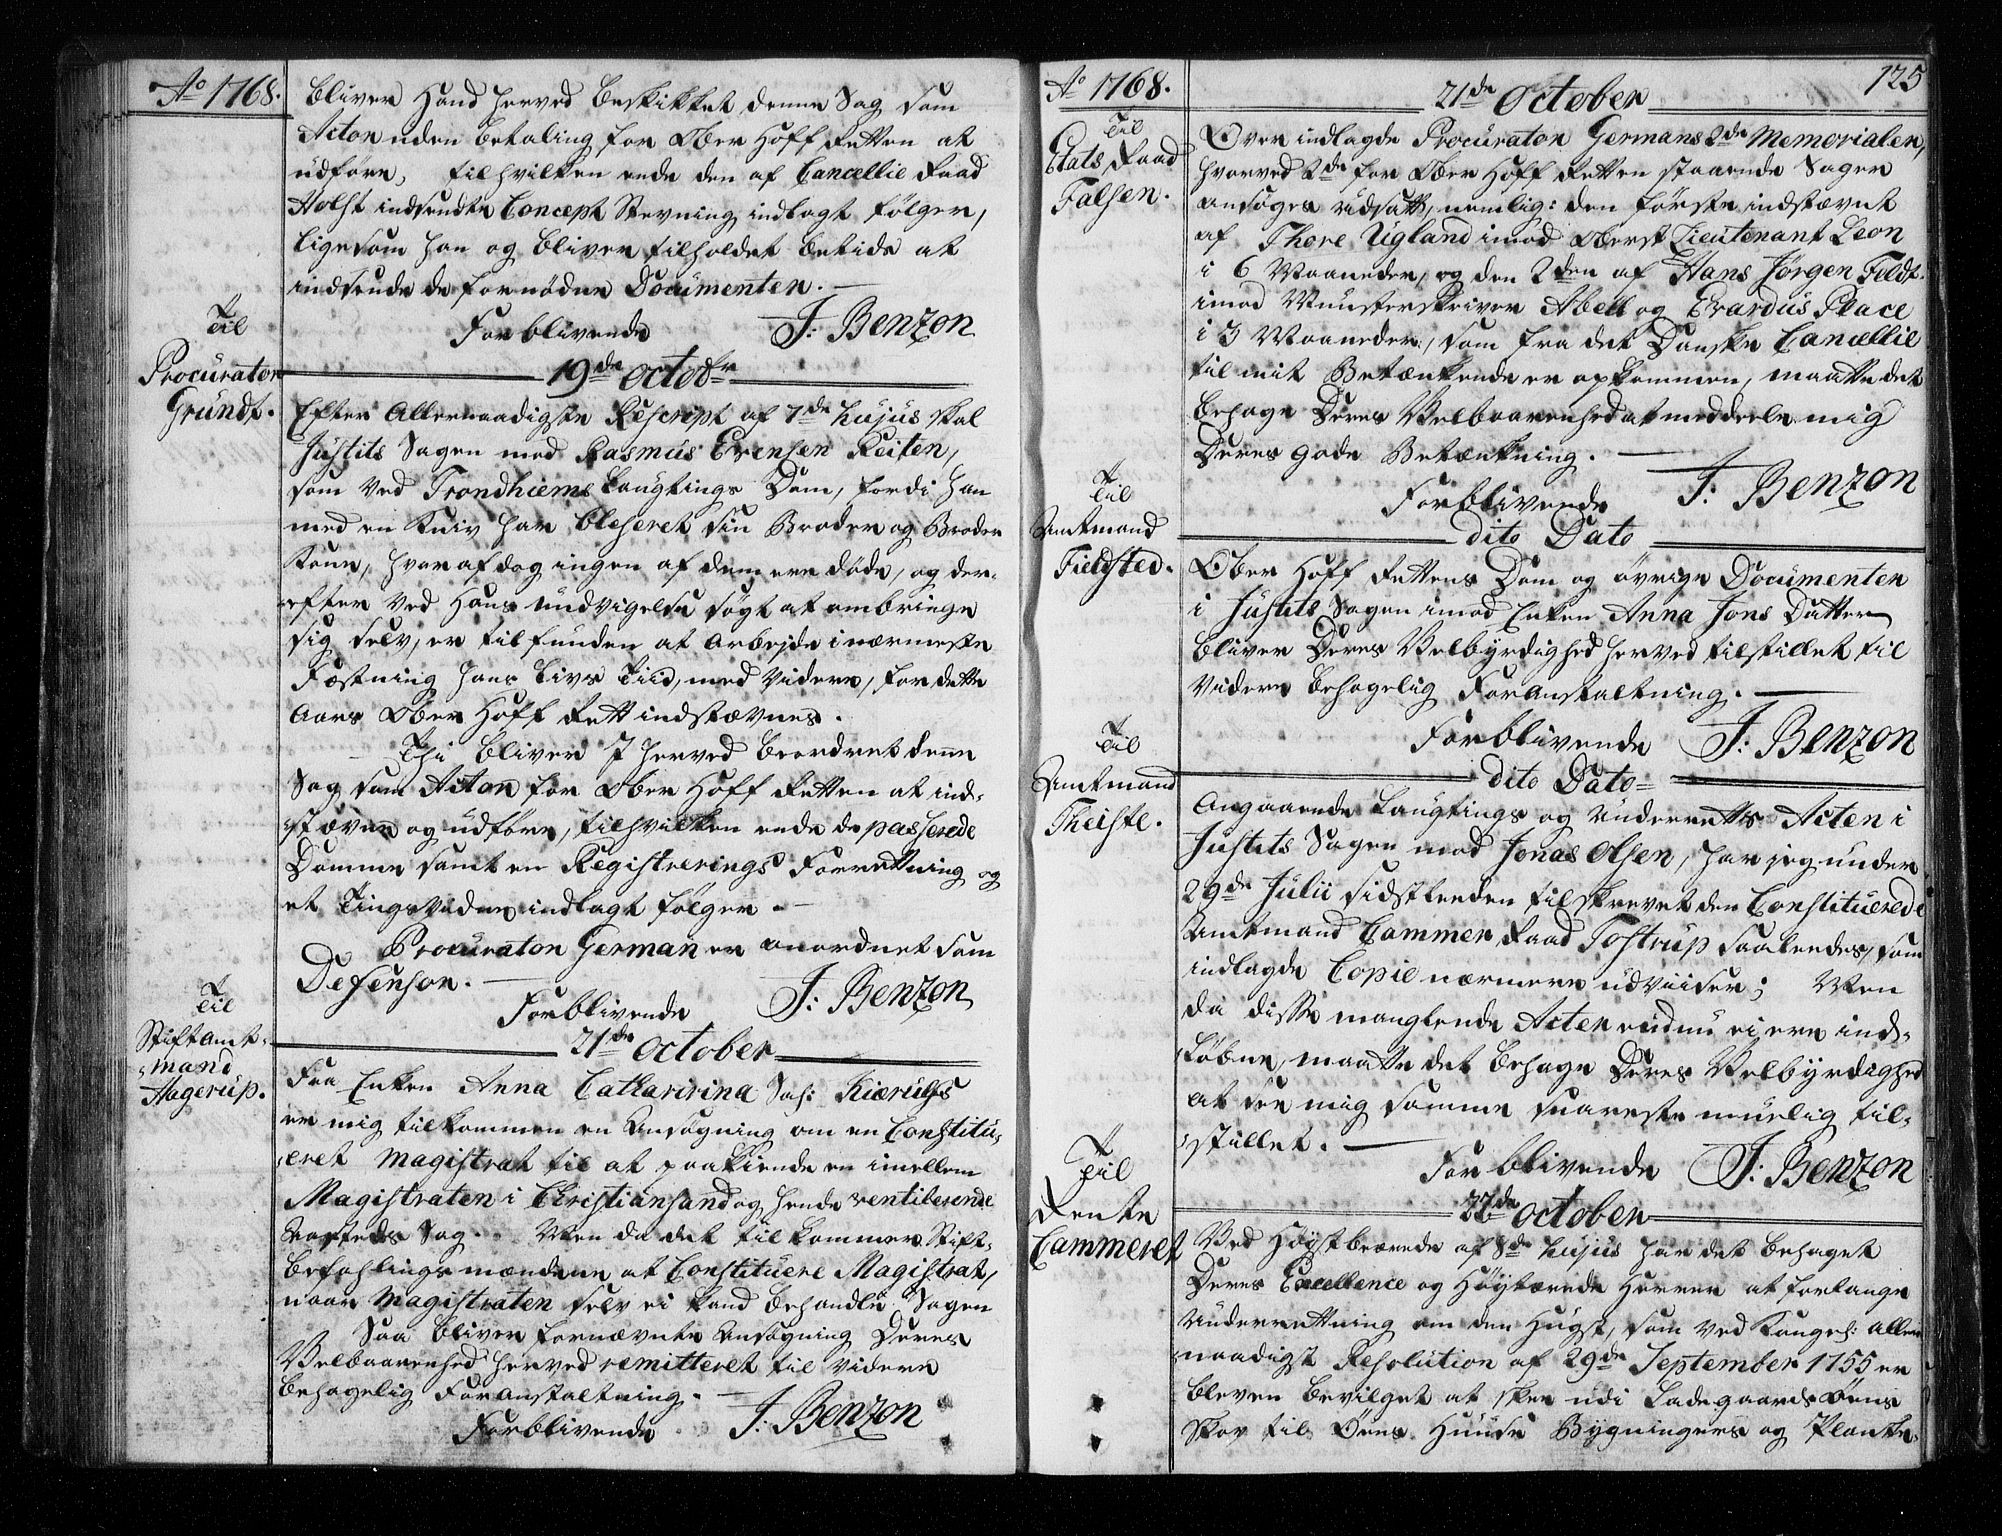 Ao 1768.
bliver Hand herved beskikket denne Sag som
Actor uden betaling for Ober Hoff Retten at
udføre, til hvilken ende den af Cancellie Raad
Holst indsendte Concept Stevning indlagt følger,
ligesom han og bliver tilholdet betids at
indsende de fornødne Documenter. —
Forblivende J: Benzon
19de octobr
Til
Procurator
Grundt.
Efter Allernaadigste Rescript af 7de hujus skal
Justits Sagen mod Rasmus Evensen Reiten,
som ved Trondhiems Laugtings Dom, fordi han
med en Kniv har blesseret sin Broder og Broder
Kone, hvoraf dog ingen af dem ere døde, og der-
efter ved Hans Undvigelse søgt at ombringe
sig selv, er tilfunden at arbejde i nærmeste
Fæstning hans Livs Tiid, med videre, for dette
Aars Ober Hoff Rett indstævnes.
Thi bliver I herved beordret denne
Sag som Actor for Ober Hoff Retten at ind-
stævne og udføre, til hvilken ende de passerede
Domme samt en Registrerings Forretning og
et Tingsvidne indlagt følger. —
Procurator German er anordnet som
Defensor. —
Forblivende J: Benzon
21de October
Til
Stift Amt-
mand
Hagerup.
Fra Enken Anna Catharirina Sal: Kierulfs
er mig tilkommen en Ansøgning om en Constitu-
eret Magistrat til at paakiende en imellem
Magistraten i Christiansand og hende ventilerende
Sag. Men da det tilkommer Stift-
befahlingsmændene at Constituere Magistrat,
naar Magistraten selv ei kand behandle Sagen
Saa bliver fornævnte Ansøgning Deres
Velbaarenhed herved remitteret til videre
behagelig Foranstaltning. —
Forblivende J: Benzon
Ao 1768.
125
21de October
Til
Etats Raad
Falsen.
Over indlagde Procurator Germans 2de Memorialer,
hvorved 2de for Ober Hoff Retten staaende Sager
ansøges udsatt, nemlig: den første indstævnt
af Thore Ugland imod Oberst Lieutenant Leon
i 6 Maaneder, og den 2den af Hans Jørgen Feldt
imod Munsterskriver Abell og Evardus Place
i 3 Maaneder, som fra det Danske Cancellie
til mit Betænkende er opkommen, maatte det
behage Deres Velbaarenhed at meddeele mig
Deres gode Betænkning. —
Forblivende J: Benzon
dito Dato
Til
Amtmand
Fieldsted.
Ober Hoff Rettens Dom og øvrige Documenter
i Justits Sagen imod Enken Anna Jons Datter
bliver Deres Velbyrdighed herved tilstillet til
videre behagelig Foranstaltning. —
Forblivende J: Benzon
dito Dato
Til
Amtmand
Theiste.
Angaaende Laugtings og Underretts Acten i
Justits Sagen mod Jonas Olsen, har jeg under
29de Julii sidstleeden tilskrevet den Constituerede
Amtmand Cammer Raad Tostrup saaledes, som
indlagde Copie nærmere udviiser; Men
da disse manglende Acter endnu ei ere ind-
løbne, maatte det behage Deres Velbyrdighed
at see mig samme snareste muelig til-
stillet. —
Forblivende J: Benzon
22de October
Til
Rente
Cammeret
Ved Høystbeærede af 8de hujus har det behaget
Deres Excellence og Høystærede Herrer at forlange
Underretning om den Hugst, som ved Kongel: aller-
naadigst Resolution af 29de September 1755 er
bleven bevilget at skee udi Ladegaards Øens
Skov til Øens Huuse Bygninger og Planke-